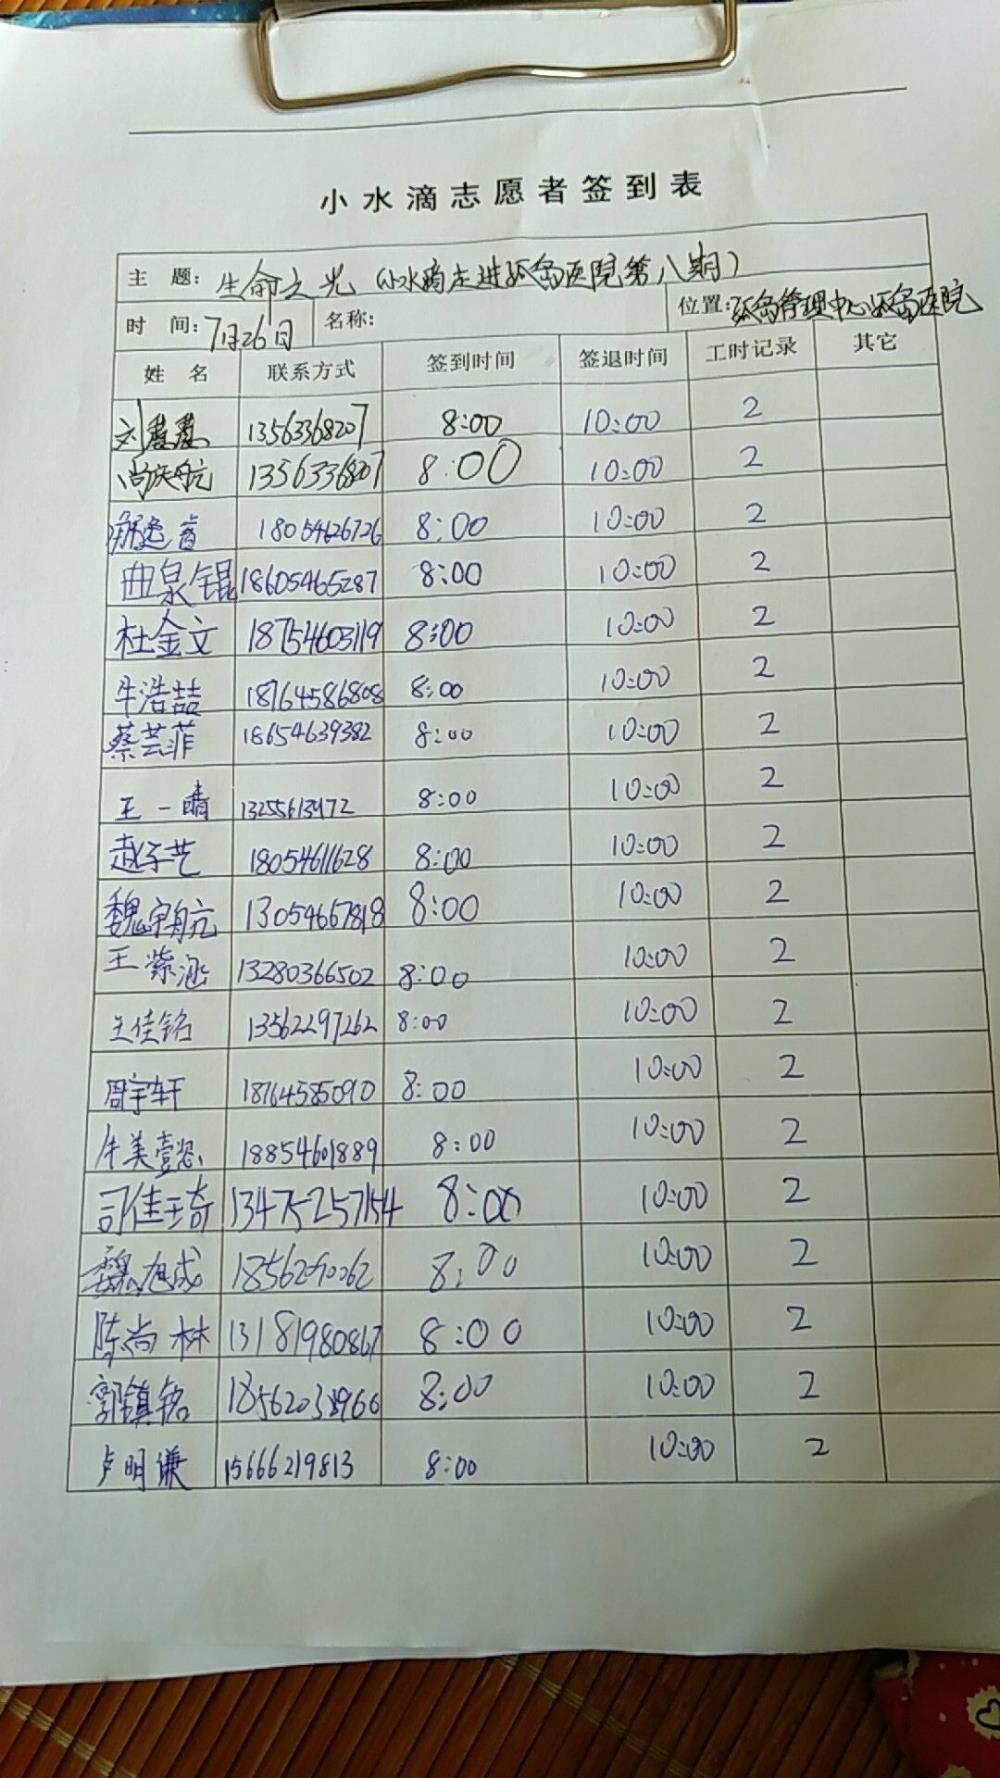 小水滴志愿者签到表
主 题: 生命之光(小水滴走进孤岛医院第八期)
时 间: 7月26日 名称: 位置: 孤岛管理中心孤岛医院
姓 名 联系方式 签到时间 签退时间 工时记录 其它
刘慧慧 13563368207 8:00 10:00 2
尚庆航 13563368207 8:00 10:00 2
18054626726 8:00 10:00 2
曲泉锟 18605465287 8:00 10:00 2
杜金文 18754603119 8:00 10:00 2
牛浩喆 18764586808 8:00 10:00 2
蔡芸菲 18654639382 8:00 10:00 2
王一晴 13255613972 8:00 10:00 2
赵子艺 18054611628 8:00 10:00 2
魏宇航 13054667818 8:00 10:00 2
王紫涵 13280366502 8:00 10:00 2
王佳铭 13562297262 8:00 10:00 2
周宇轩 18764585090 8:00 10:00 2
牛美壹 18854601889 8:00 10:00 2
司佳琦 13475257154 8:00 10:00 2
魏旭成 8:00 10:00 2
陈尚林 13181980867 8:00 10:00 2
郭镇铭 18562038966 8:00 10:00 2
卢明谦 15666219813 8:00 10:00 2